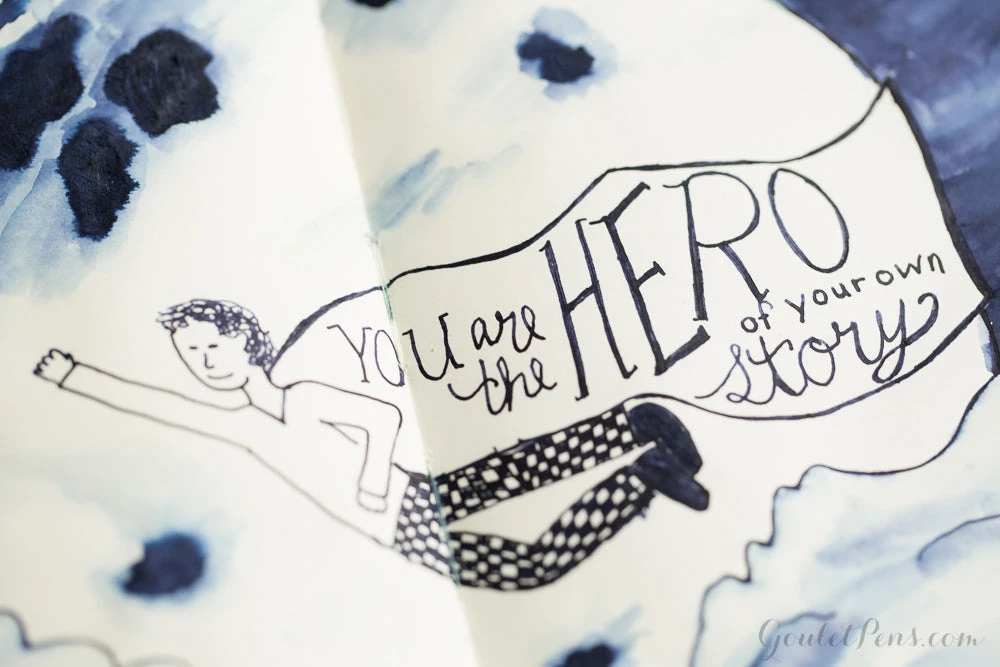 YOU are the HERO
of your own
story
GouletPens.com